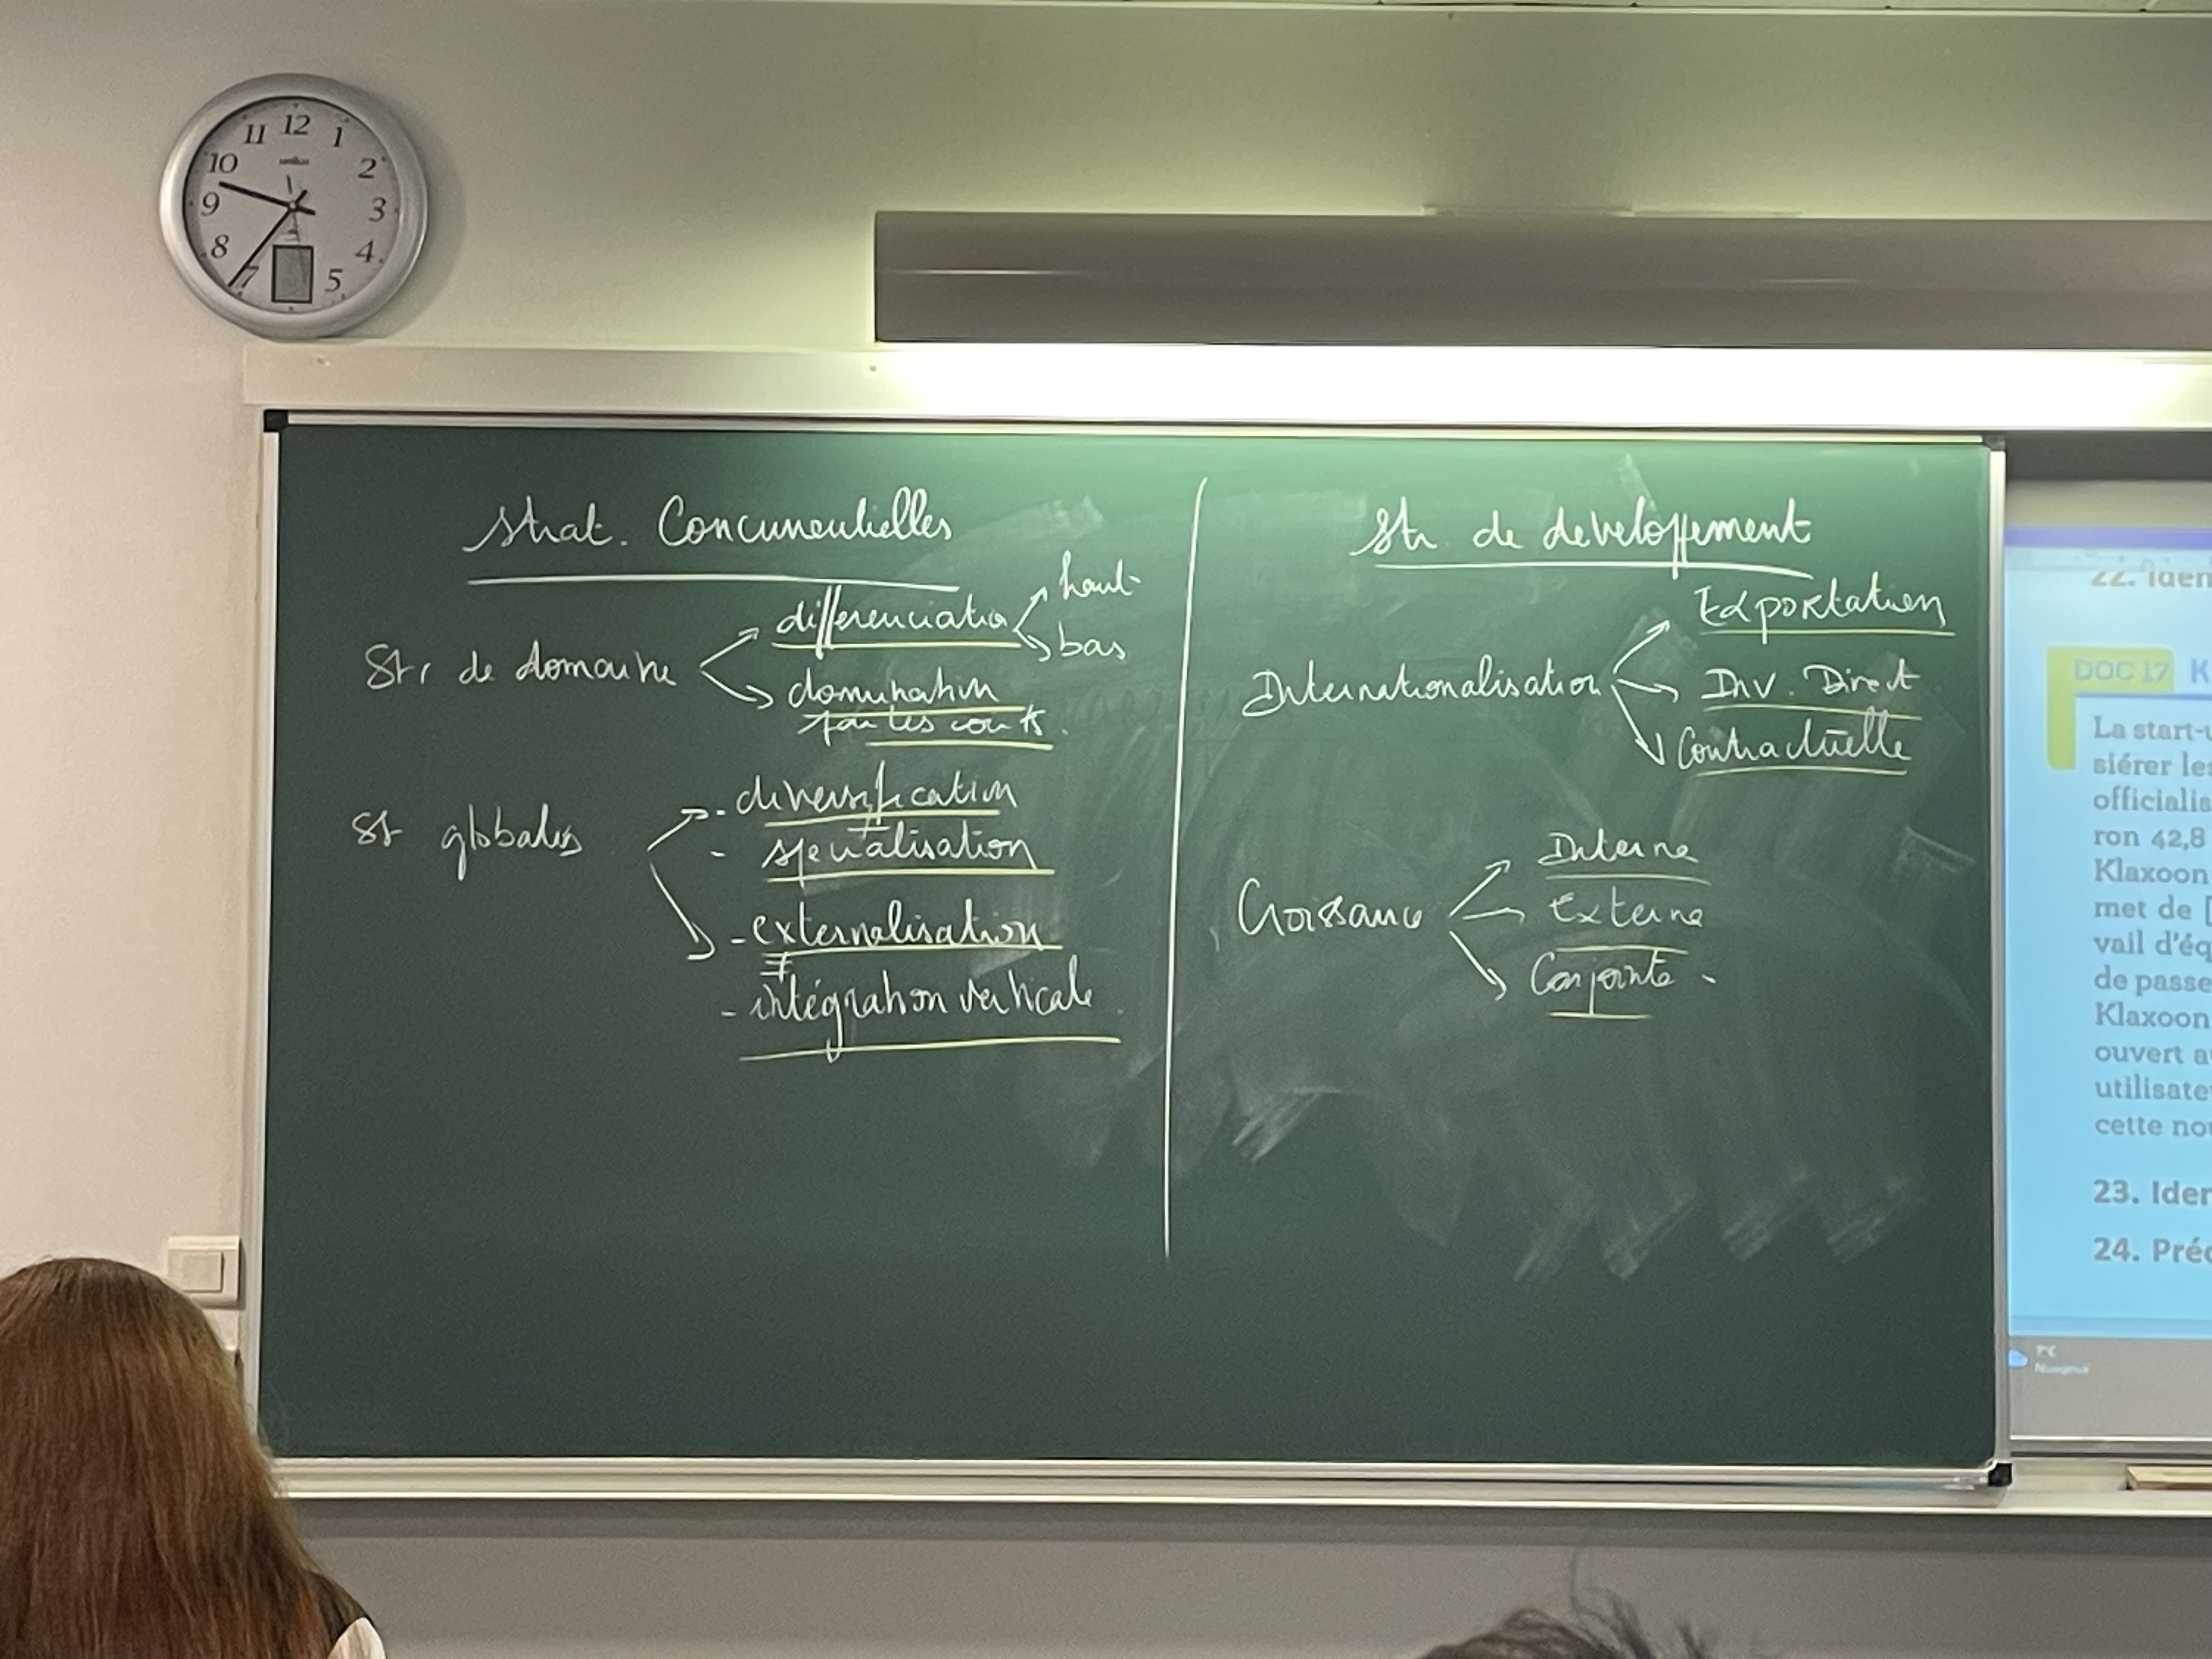 12
11
1
10
2
9
3
8
4
7
5
strat. Concurrentielles
Str de domaine
differenciatio
haut
bas
domination
par les couts.
St globales
- diversification
≠
- spécialisation
- externalisation
≠
- intégration verticale.
Str de developpement
Internationalisation
Exportation
Inv. Direct
Contractuelle
Croissance
Interne
Externe
Conjointe.
22. Iden
DOC 17 K
La start-u
siérer les
officialis
ron 42,8
Klaxoon
met de [
vail d'éq
de passe
Klaxoon
ouvert a
utilisate
cette no
23. Iden
24. Préc